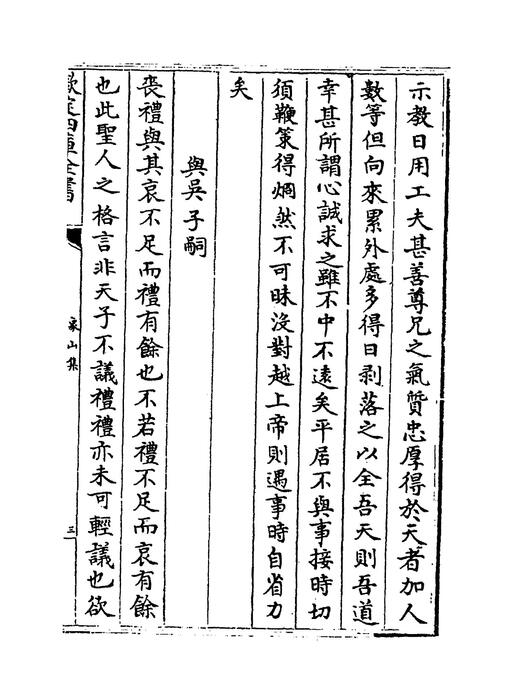 示教日用工夫甚善尊兄之氣質忠厚得於天者加人
數等但向來累外處多得日剥落之以全吾天則吾道
幸甚所謂心誠求之雖不中不遠矣平居不與事接時切
須鞭策得烱然不可昧没對越上帝則遇事時自省力
矣
與吳子嗣
喪禮與其哀不足而禮有餘也不若禮不足而哀有餘
也此聖人之格言非天子不議禮禮亦未可輕議也欲
欽定四庫全書
象山集
三